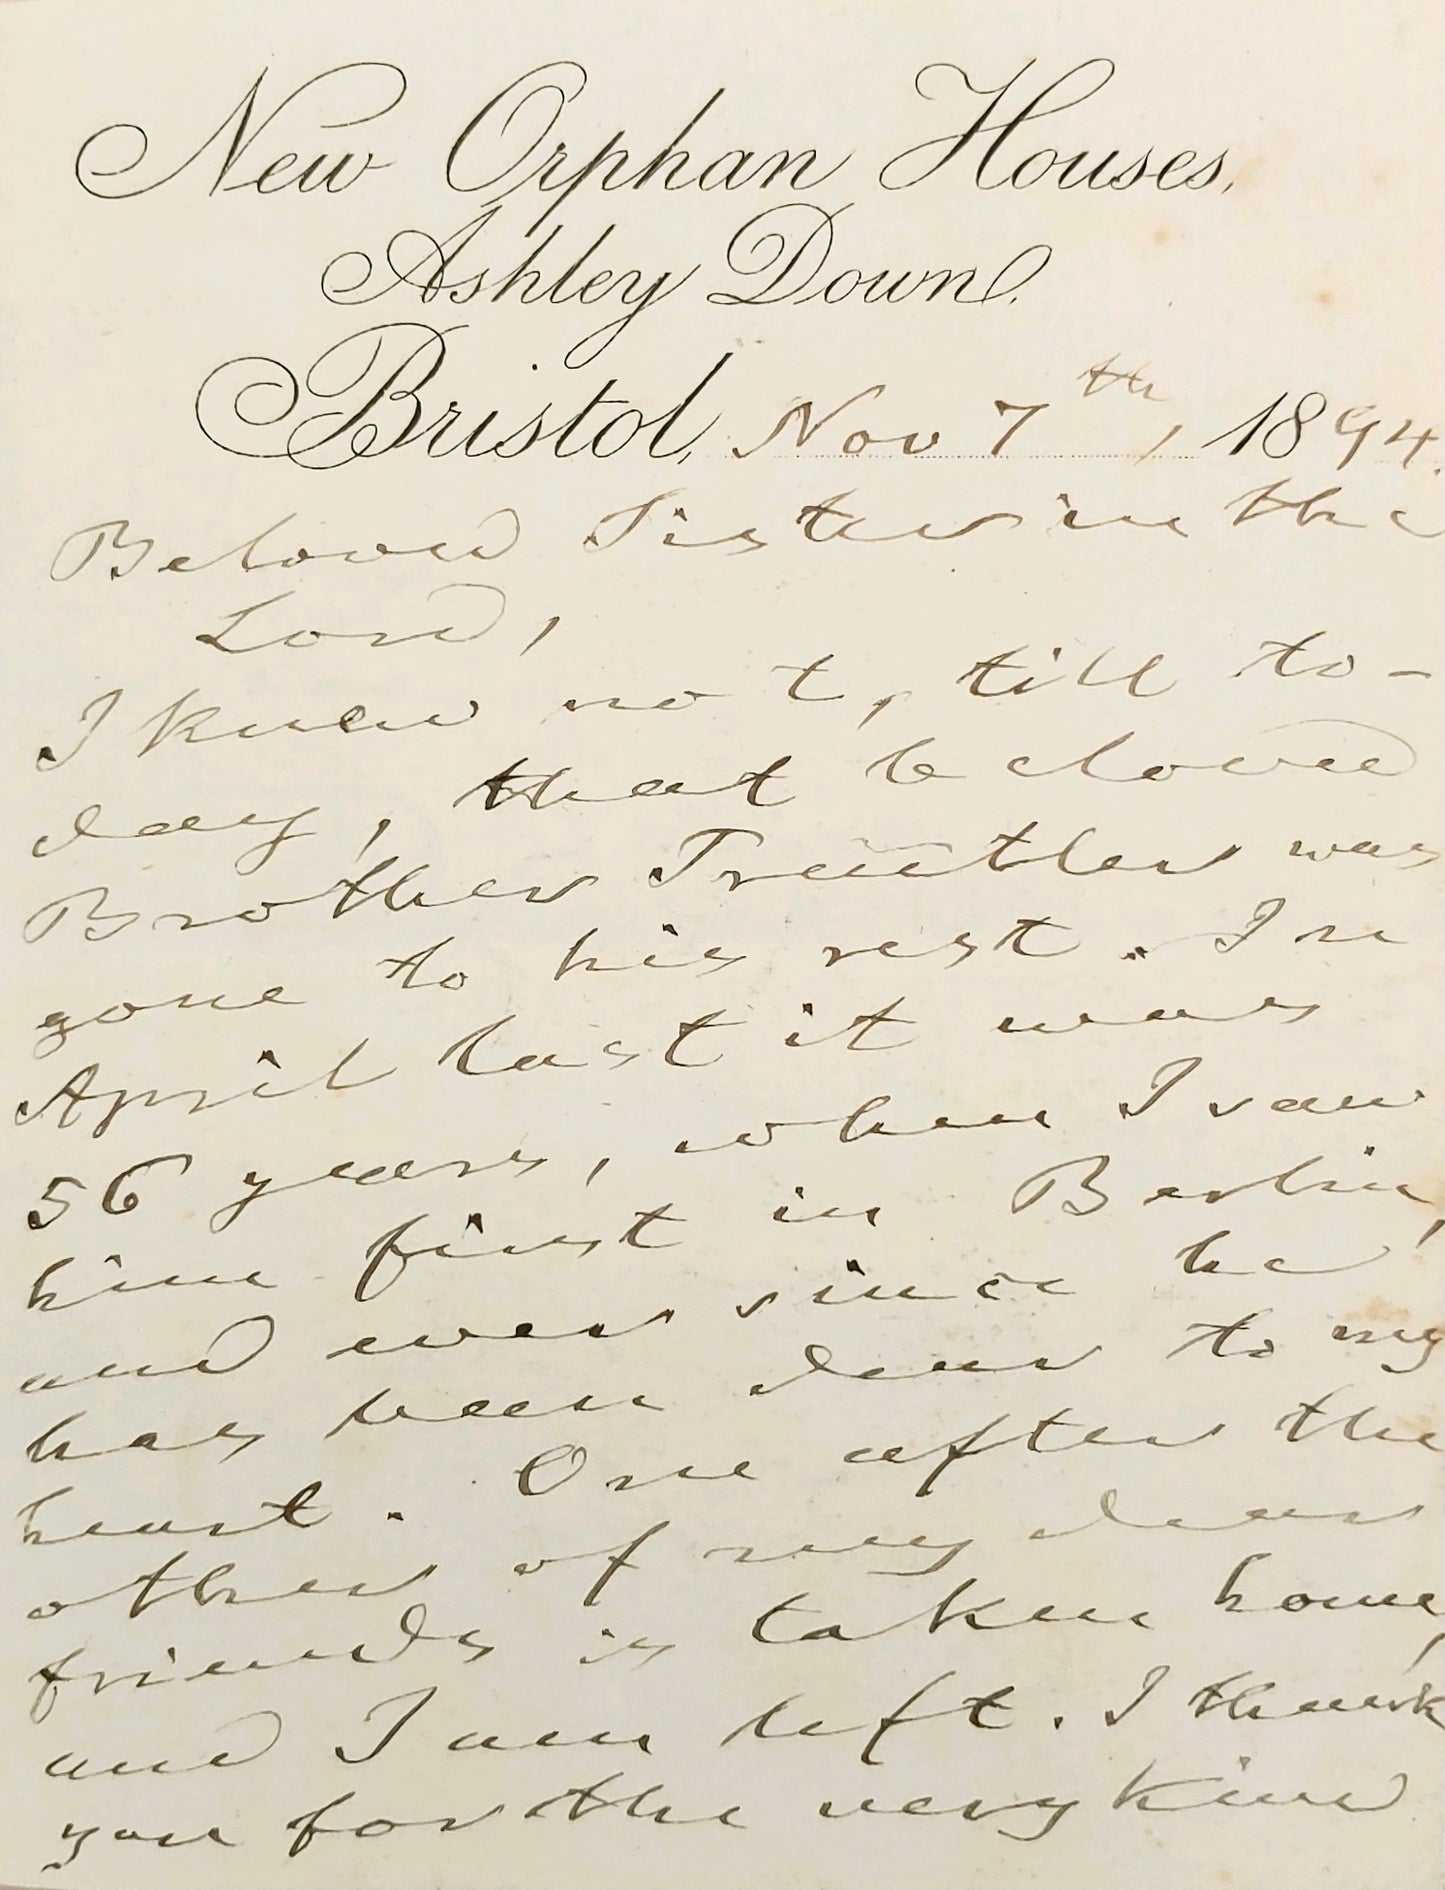 New Orphan Houses,
Ashley Down,
Bristol, Nov 7th, 1894.
Beloved Sister in the
Lord,
I knew not, till to-
day, that beloved
Brother Treutler was
gone to his rest. In
April last it was
56 years, when I saw
him first in Berlin,
and ever since he
has been dear to my
heart. One after the
other of my dear
friends is taken home,
and I am left. I thank
you for the very kind